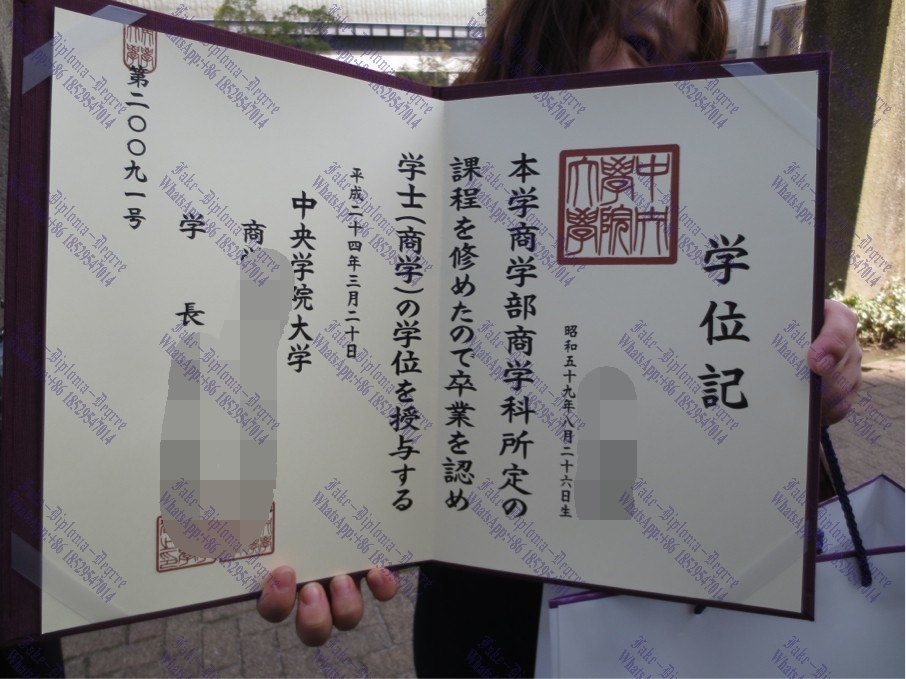 学位記
中央
學院
大學
昭和五十九年八月二十六日生
本学商学部商学科所定の
課程を修めたので卒業を認め
学士(商学)の学位を授与する
平成二十四年三月二十日
中央学院大学
商
学長
第二〇〇九一号
Fake-Diploma-Degree
WhatsApp:+86 18529547014